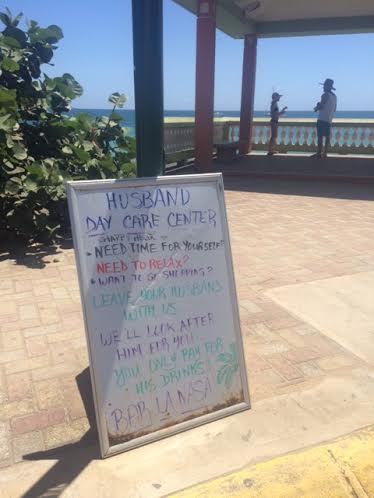 HUSBAND
DAY CARE CENTER
HAPPY HOUR
• NEED TIME FOR YOURSELF?
NEED TO RELAX?
• WANT TO GO SHOPPING?
LEAVE YOUR HUSBANS
WITH US
WE'LL LOOK AFTER
HIM FOR YOU
YOU ONLY PAY FOR
HIS DRINKS
BAR LA NASA